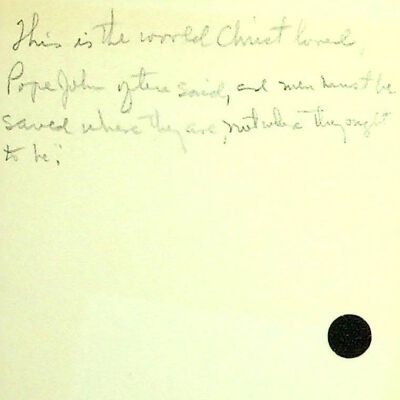 This is the world Christ loved,
Pope John often said, and men must be
saved where they are, not where they ought
to be."